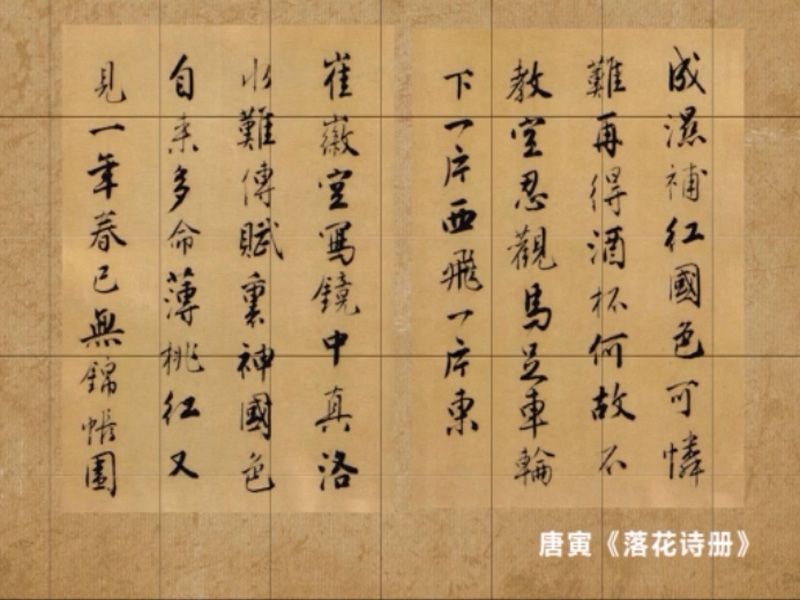 成濕補紅國色可憐
難再得酒杯何故不
教空忍觀馬足車輪
下一片西飛一片東
崔徽空寫鏡中真洛
水難傳賦裏神國色
自来多命薄桃紅又
見一年春已無錦帳圍
唐寅《落花诗册》